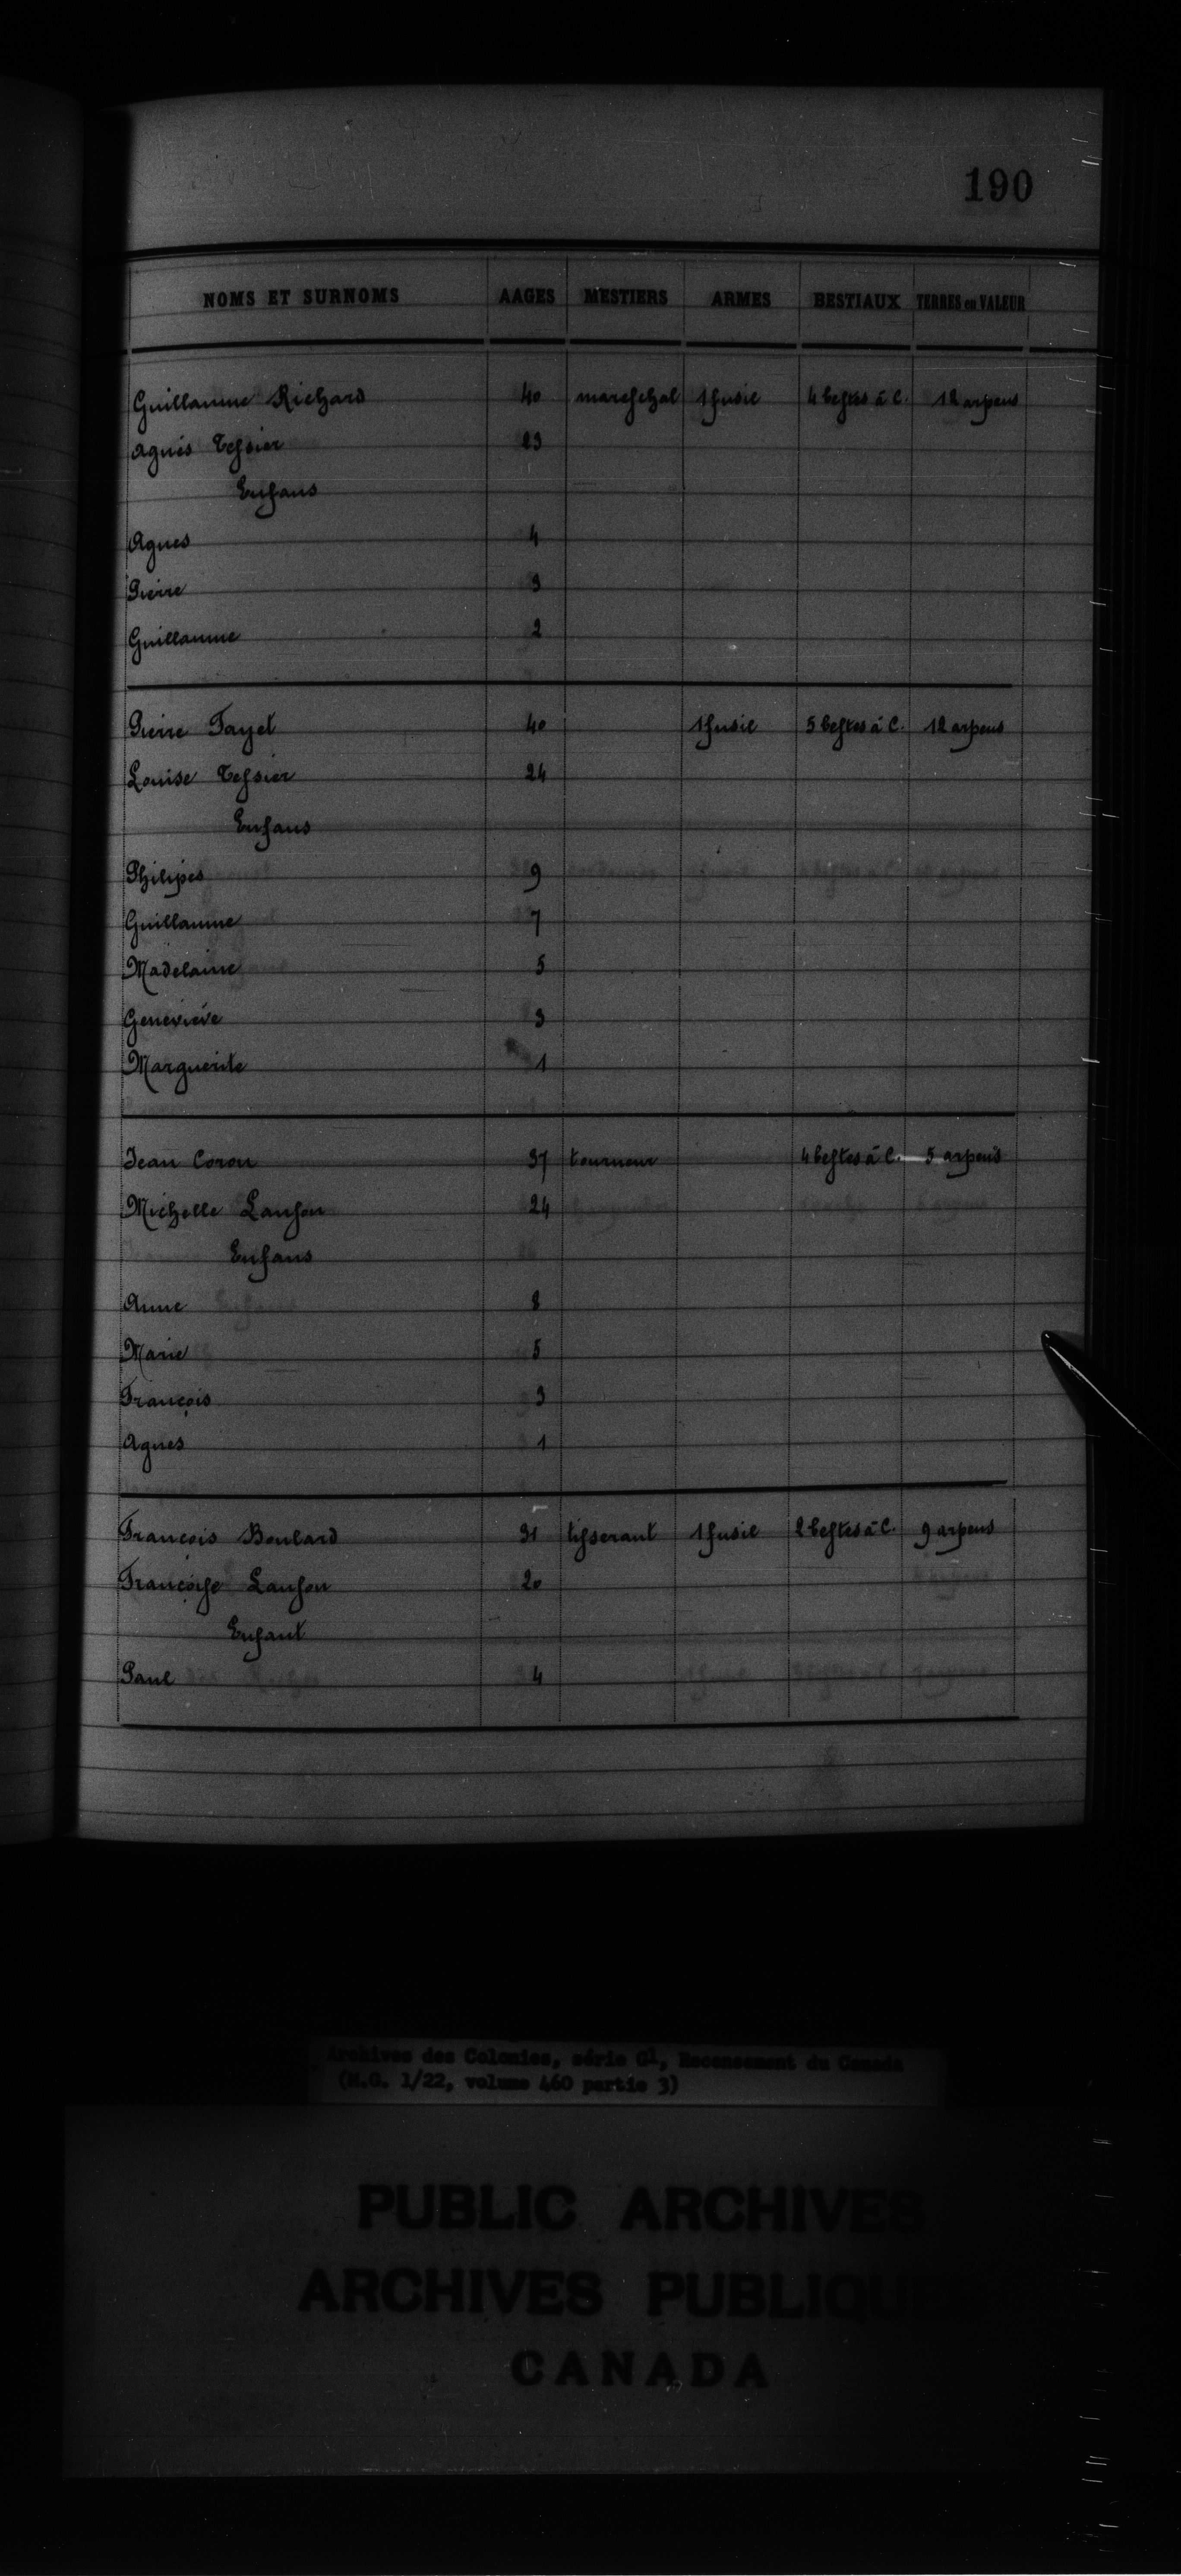 190
NOMS ET SURNOMS AAGES MESTIERS ARMES BESTIAUX TERRES en VALEUR
Guillaume Richard 40 mareschal 1 fusil 4 bestes à C. 12 arpens
Agnès Tessier 23
Enfans
Agnes 4
Pierre 3
Guillaume 2
Pierre Fayet 40 1 fusil 5 bestes à C. 12 arpens
Louise Tessier 24
Enfans
Philipes 9
Guillaume 7
Madelaine 5
Geneviève 3
Marguerite 1
Jean Coron 37 tourneur 4 bestes à C. 5 arpens
Michelle Lauson 24
Enfans
Anne 8
Marie 5
François 3
Agnes 1
François Boulard 31 tisserant 1 fusil 2 bestes à C. 9 arpens
Françoise Lauson 20
Enfant
Paul 4
Archives des Colonies, série G1, Recensement du Canada
(M.G. 1/22, volume 460 partie 3)
PUBLIC ARCHIVES
ARCHIVES PUBLIQUES
CANADA